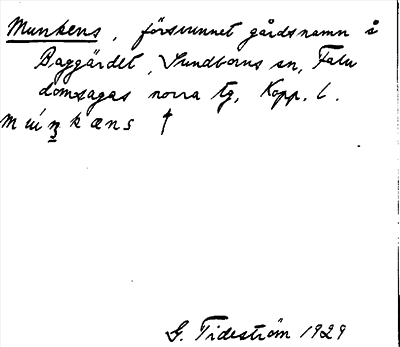 Munkens, försvunnet gårdsnamn å
Baggärdet, Sundborns sn, Falu
domsagas norra tg, Kopp. l.
G. Tideström 1929